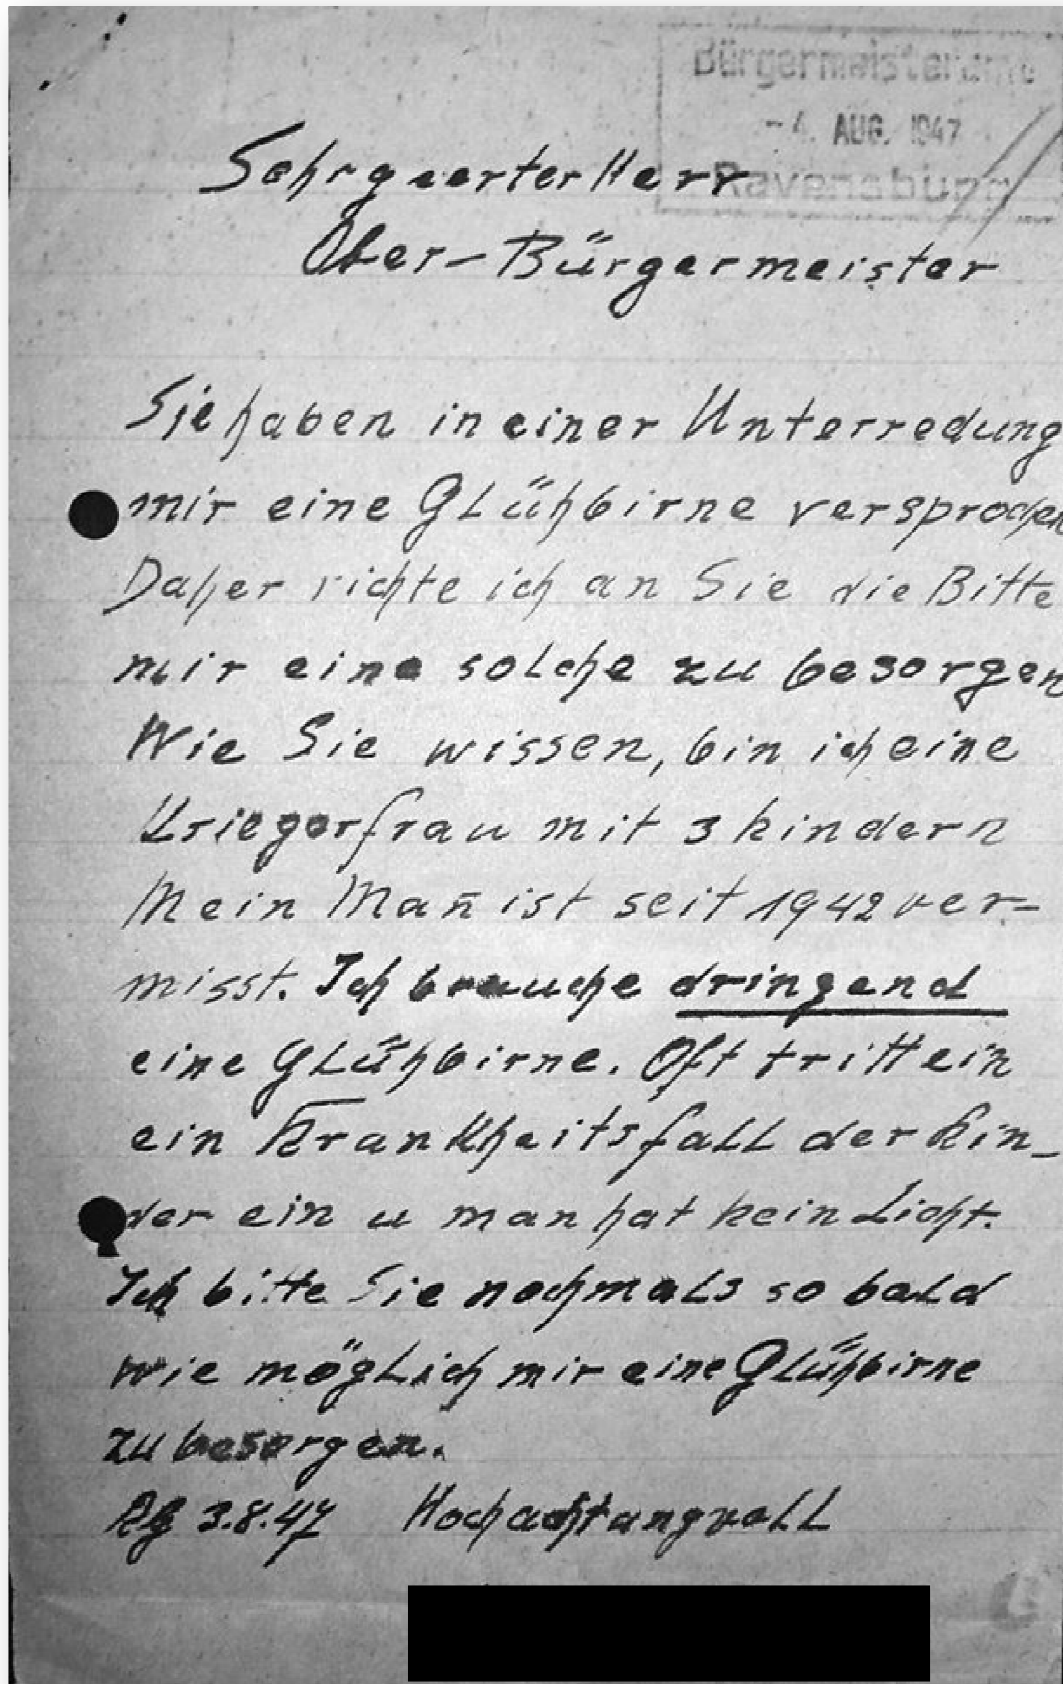 Bürgermeisteramt
- 4. AUG. 1947
Ravensburg
Sehr geerter Herr
Ober-Bürgermeister
Sie haben in einer Unterredung
mir eine Glühbirne versprochen
Daher richte ich an Sie die Bitte
mir eine solche zu besorgen
Wie Sie wissen, bin ich eine
Kriegerfrau mit 3 kindern
Mein Man̄ ist seit 1942 ver=
misst. Ich brauche dringend
eine Glühbirne. Oft tritt ein
ein Krankheitsfall der Kin-
der ein u man hat kein Licht.
Ich bitte Sie nochmals so bald
wie möglich mir eine Glühbirne
zu besorgen.
Rbg 3.8.47 Hochachtungvoll